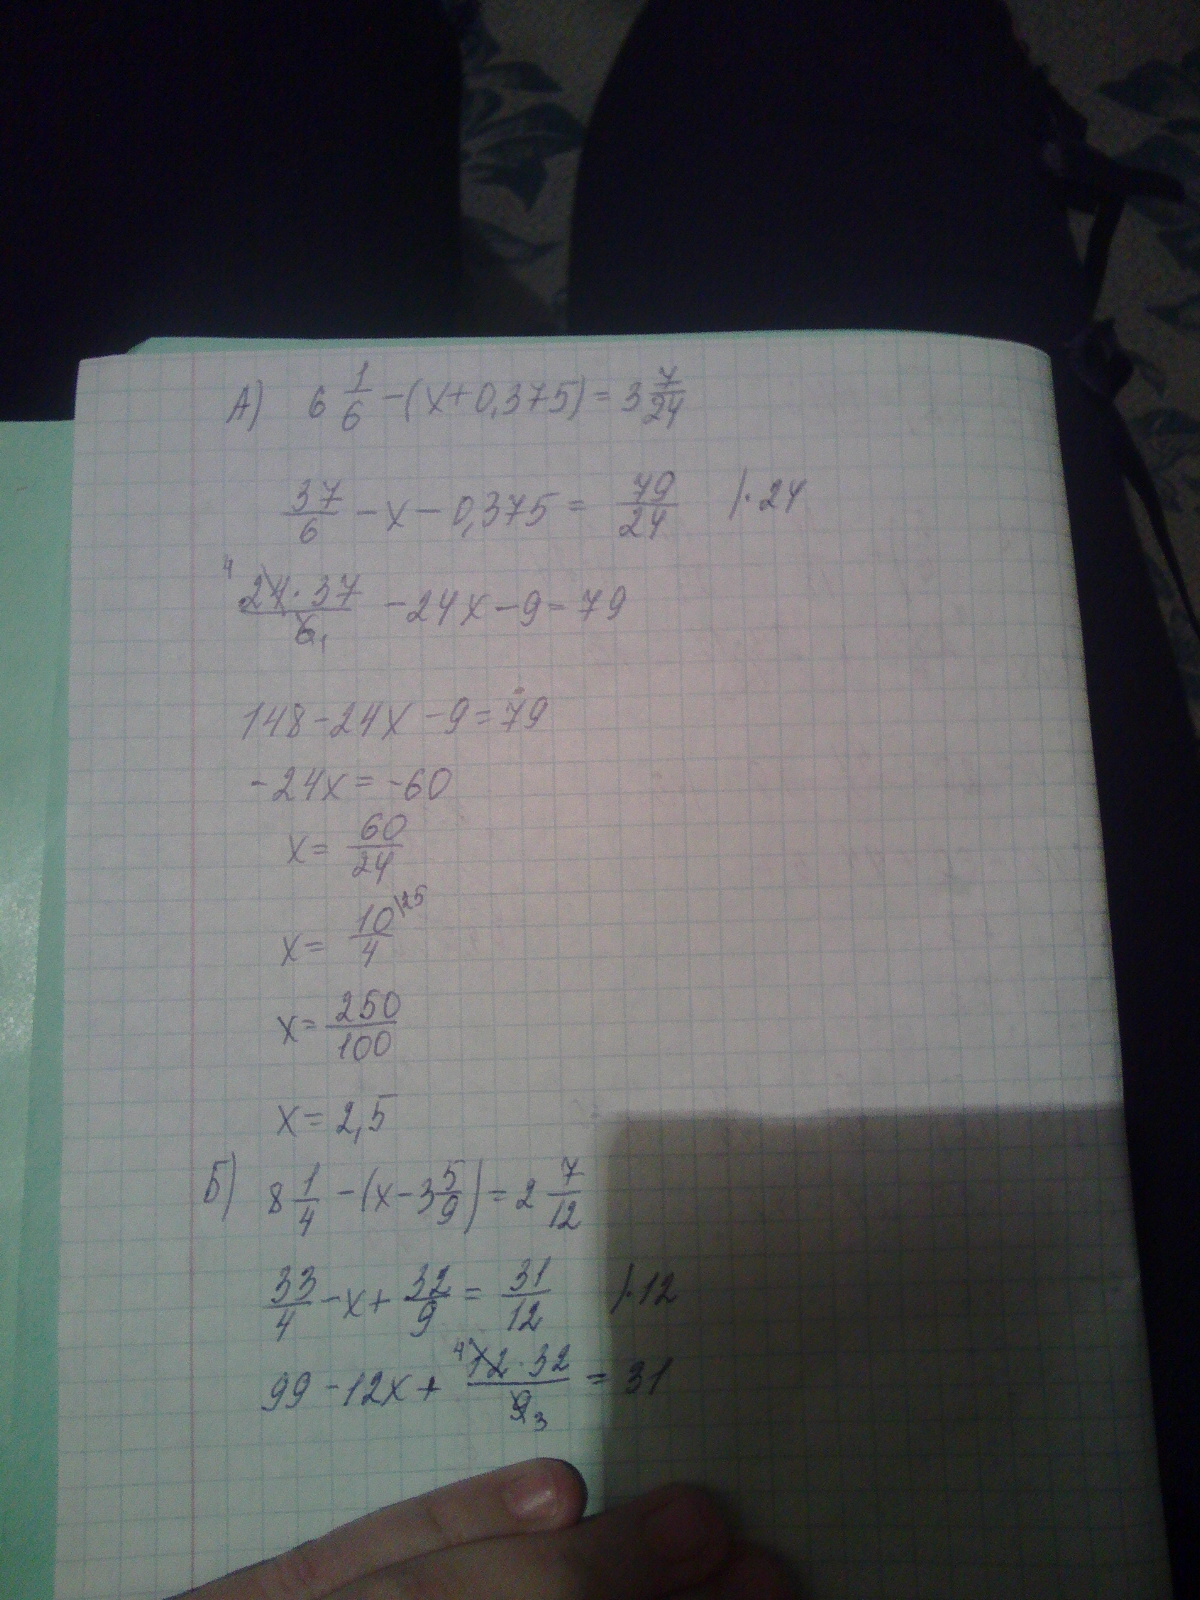 А) 6 1/6 - (x + 0,375) = 3 7/24
37/6 - x - 0,375 = 79/24 |·24
4 24·37/6 1 - 24x - 9 = 79
148 - 24x - 9 = 79
-24x = -60
x = 60/24
x = 10/4 \25
x = 250/100
x = 2,5
Б) 8 1/4 - (x - 3 5/9) = 2 7/12
33/4 - x + 32/9 = 31/12 |·12
99 - 12x + 4 12·32/9 3 = 31